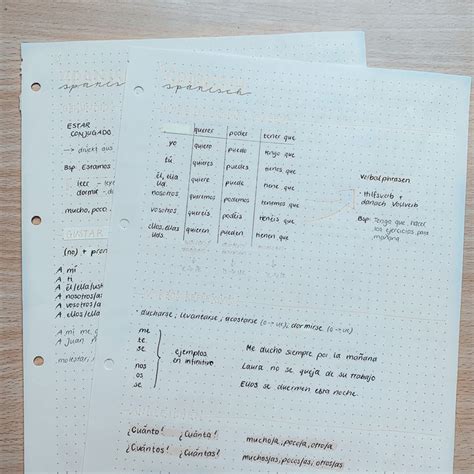 spanisch
ESTAR
CONJUGADO
→ drückt aus
Bsp Estamos
leer - leye
dormir - du
mucho, poco
GUSTAR
(no) + pron
A mí
A ti
A él/ella/ust
A nosotros/as
A vosotros/a
A ellos/ellas
A mí me
A Juan
molestar,
spanisch
querer poder tener que
yo quiero puedo tengo que
tú quieres puedes tienes que
él, ella, Ud. quiere puede tiene que
nosotros queremos podemos tenemos que
vosotros queréis podéis tenéis que
ellos, ellas, Uds. quieren pueden tienen que
Verbalphrasen
- Hilfsverb +
danach Vollverb
Bsp. Tengo que hacer
los ejercicios para
mañana
* ducharse, levantarse, acostarse (o→ue), dormirse (o→ue)
me
te
se
nos
os
se
Ejemplos
en infinitivo
Me ducho siempre por la mañana
Laura no se queja de su trabajo
Ellos se duermen esta noche.
¿Cuánto? ¿Cuánta? mucho/a, poco/a, otro/a
¿Cuántos? ¿Cuántas? muchos/as, pocos/as, otros/as